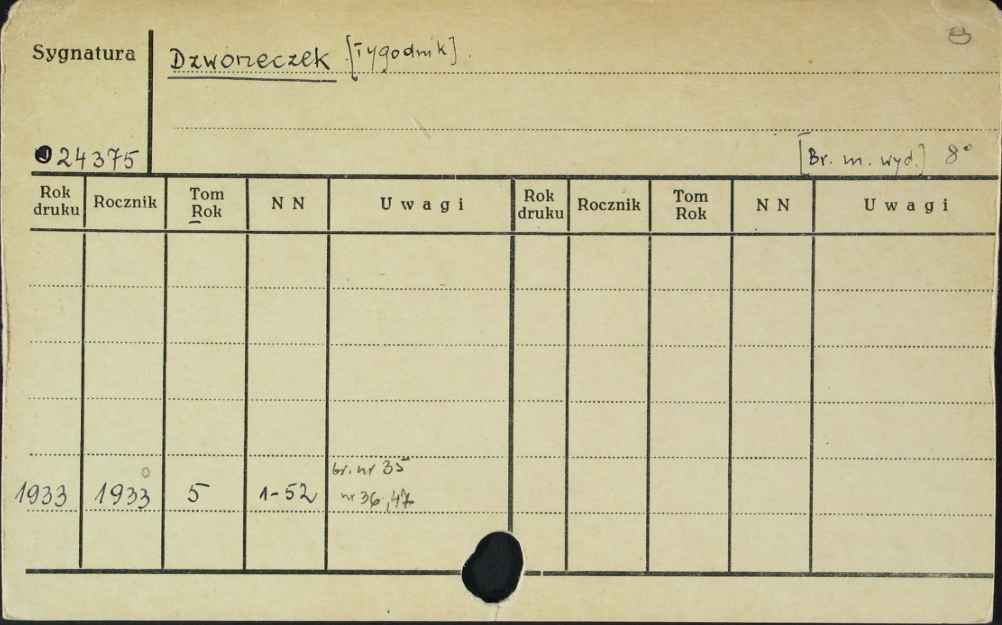 Sygnatura
Dzwoneczek [Tygodnik].
24375
[Br. m. wyd.] 8°
Rok druku Rocznik Tom Rok N N Uwagi Rok druku Rocznik Tom Rok N N Uwagi
br. nr 35
1933 1933 5 1-52 nr 36, 47